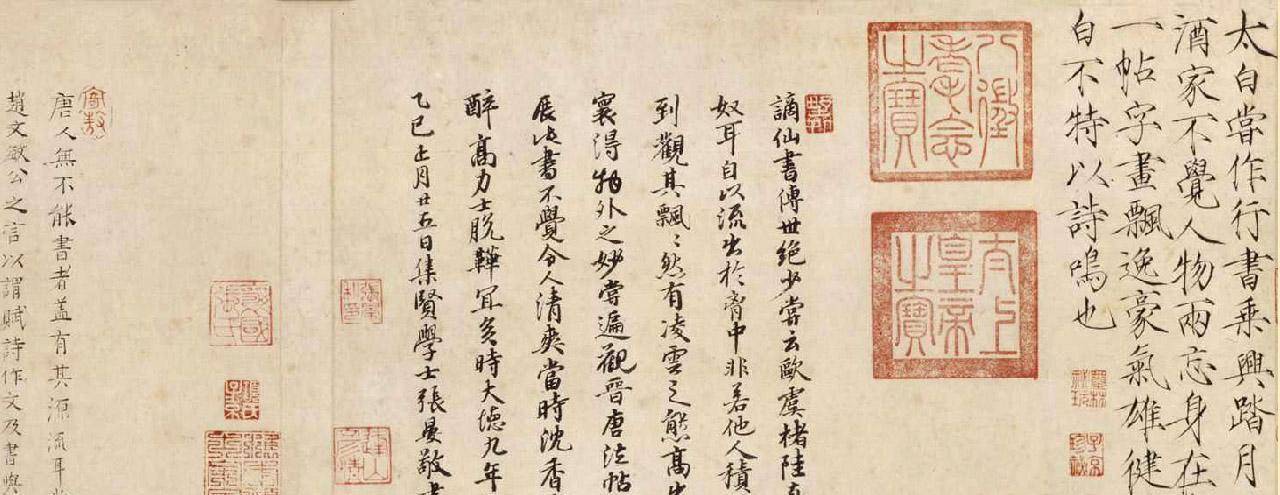 太白嘗作行書乘興踏月
酒家不覺人物兩忘身在
一帖字畫飄逸豪氣雄健
白不特以詩鳴也
八徵耄念之寶
太上皇帝之寶
謫仙書傳世絕少嘗云歐虞褚陸真
奴耳自以流出於胷中非若他人積
到觀其飄〻然有凌雲之態高
襄得物外之妙嘗遍觀晉唐法帖
展此書不覺令人清爽當時沈香
醉高力士脫鞾冝矣時大德九年
乙巳正月廿五日集賢學士張晏敬書
唐人無不能書者蓋有其源流耳
趙文敏公之言以謂賦詩作文及書與